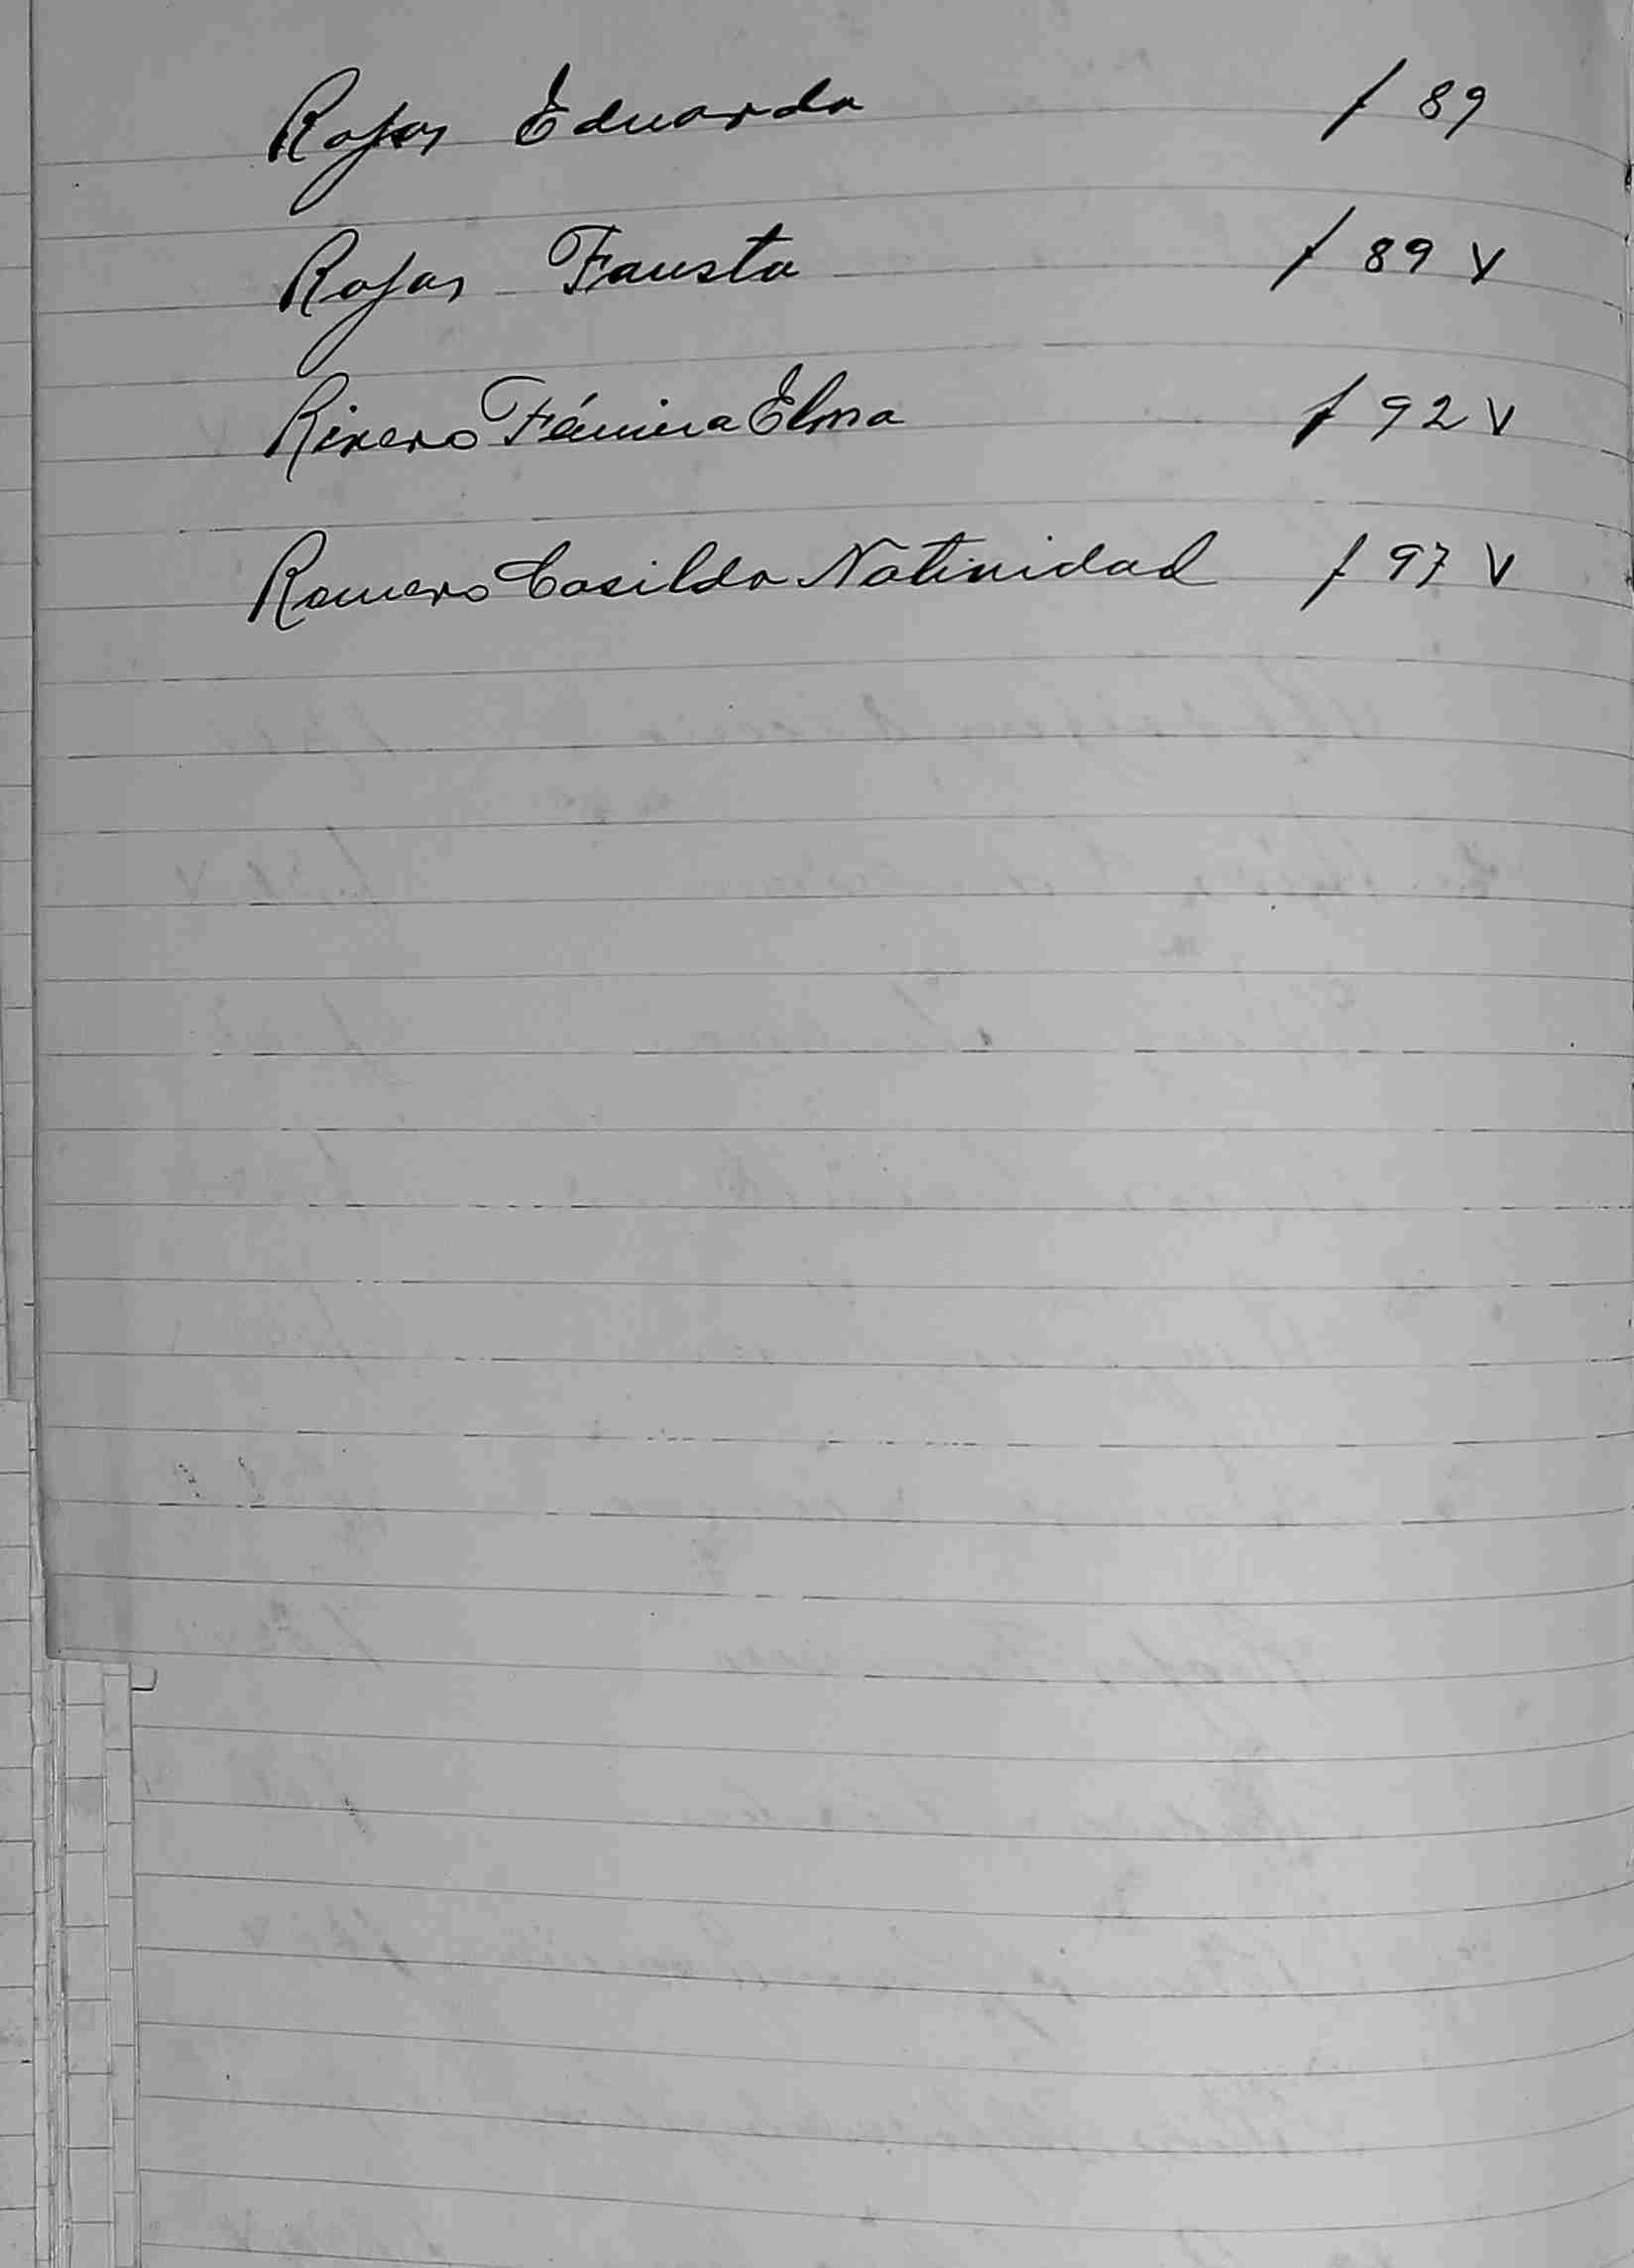 Rojas Eduardo f 89
Rojas Fausta f 89 v
Rivero Fémina Elma f 92 v
Romero Casilda Natividad f 97 v